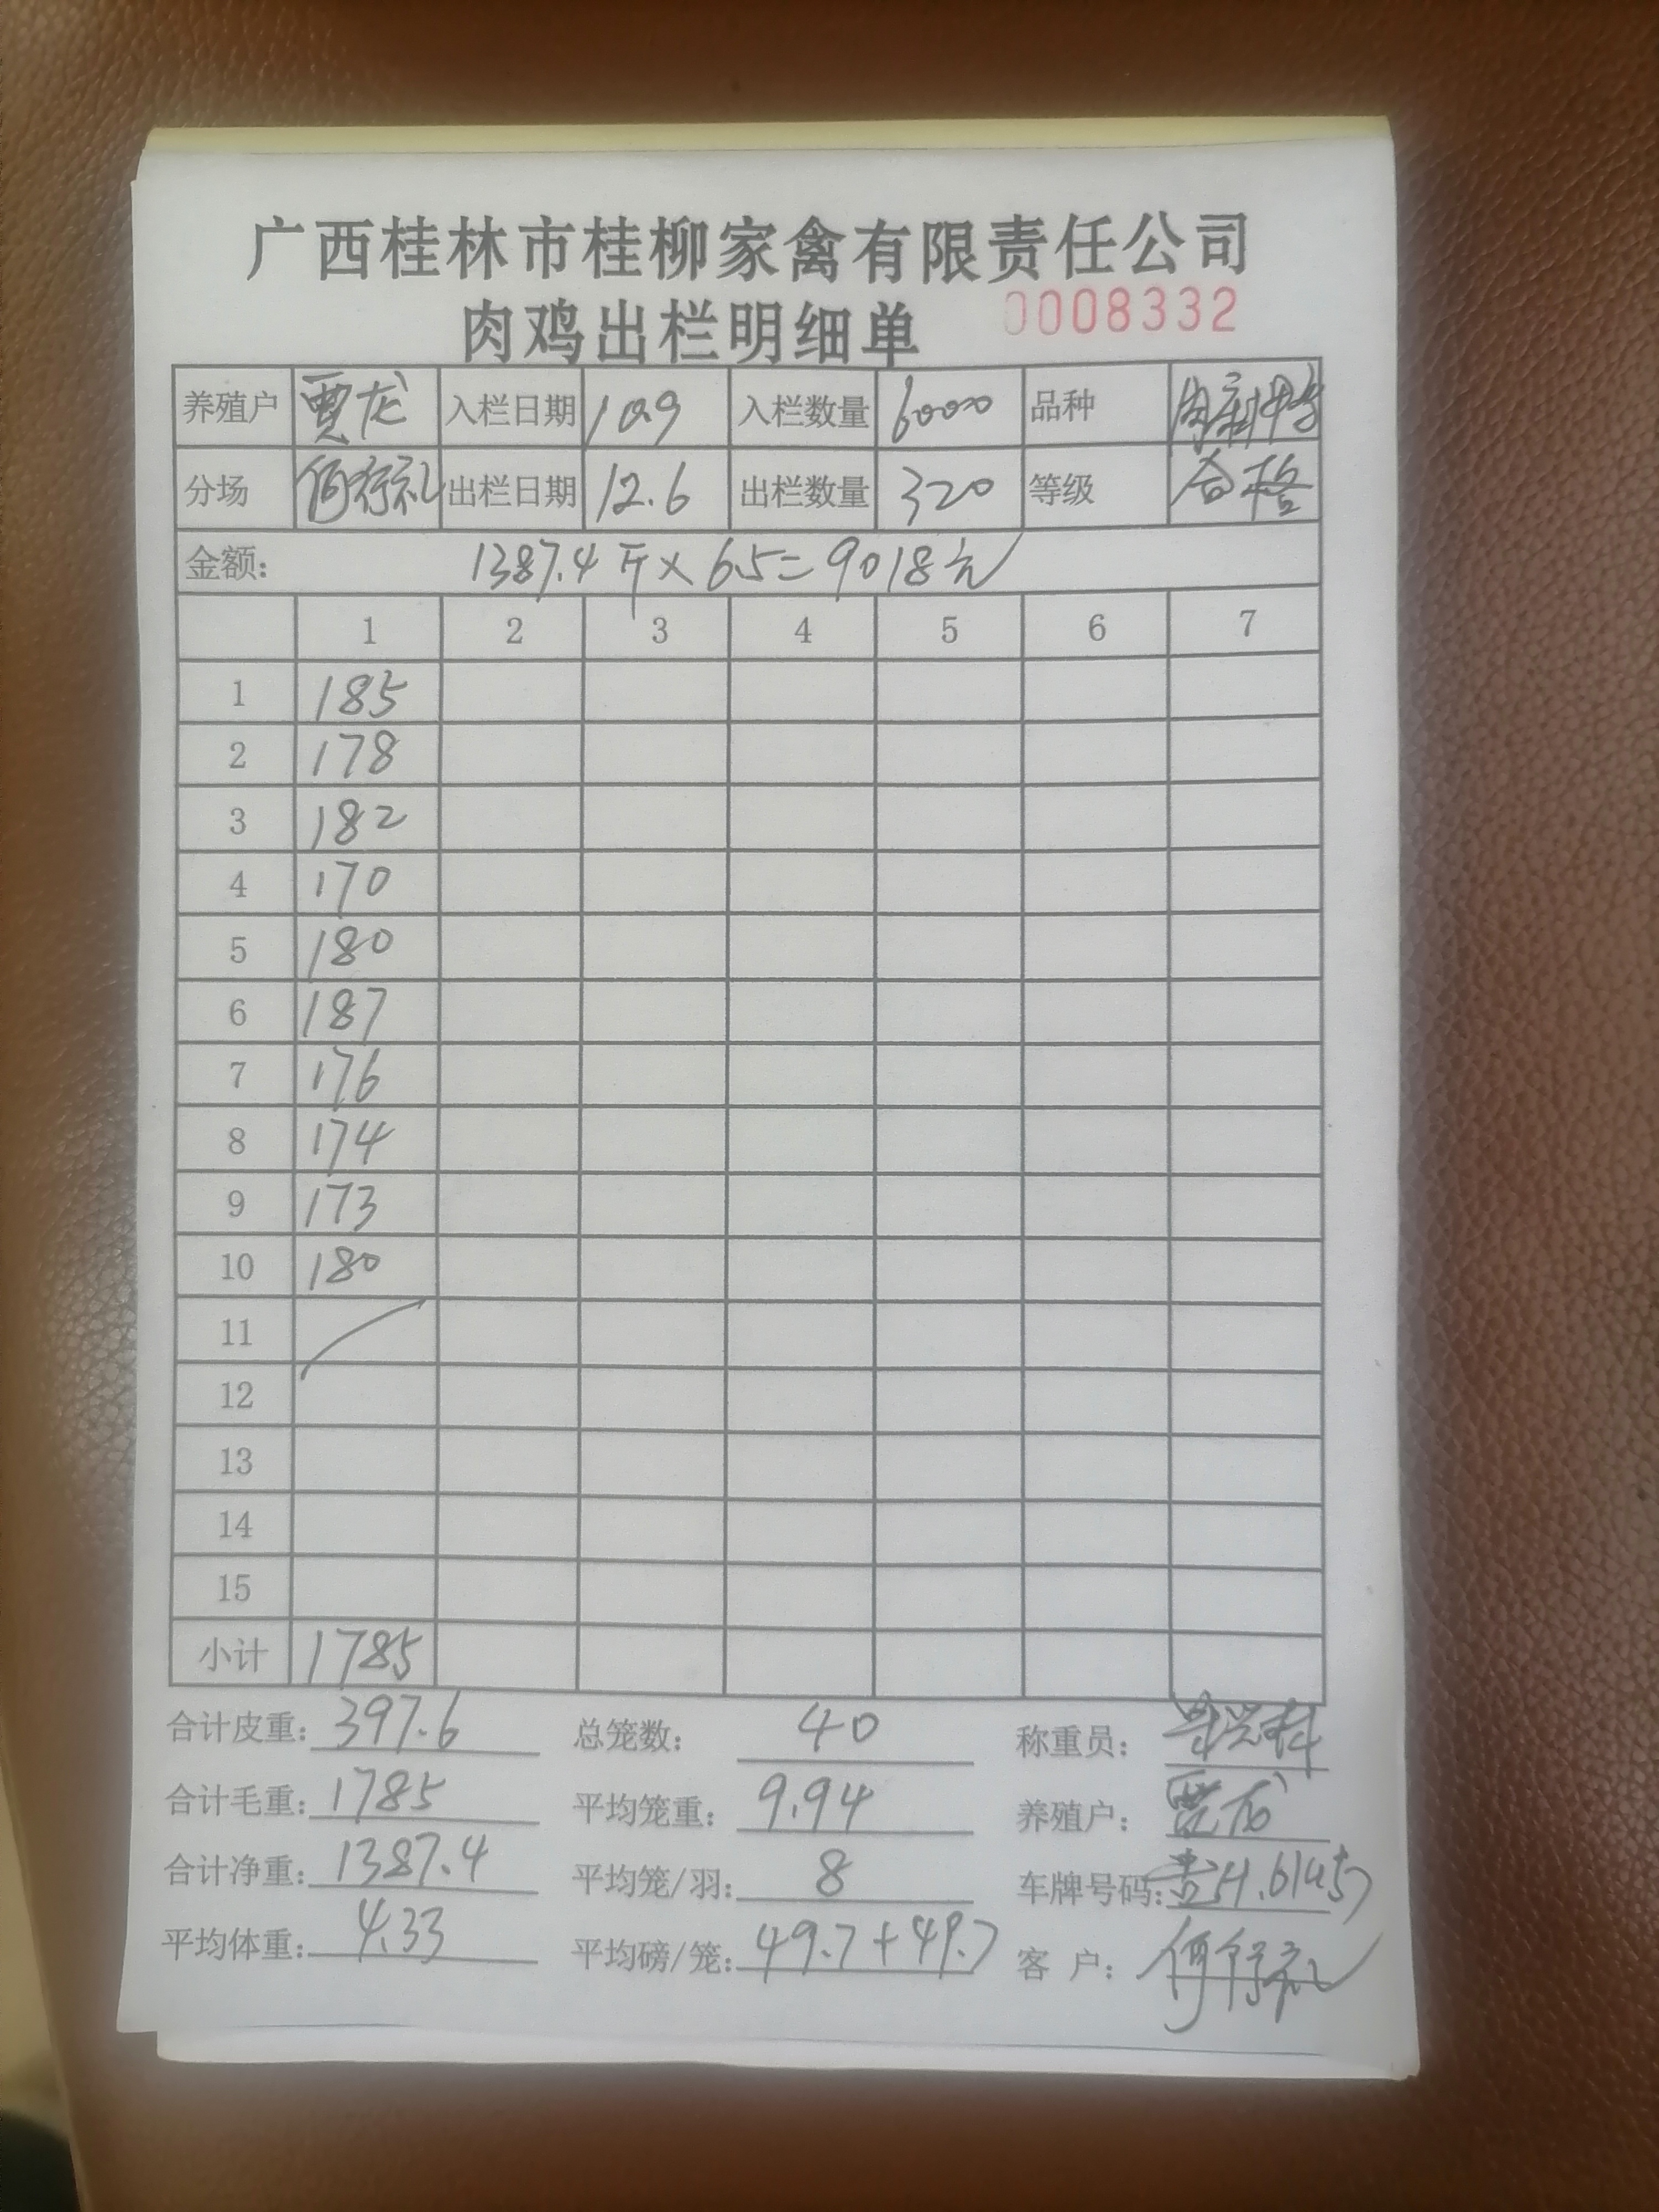 广西桂林市桂柳家禽有限责任公司
肉鸡出栏明细单 0008332
养殖户 贾龙 入栏日期 10.9 入栏数量 6000 品种
分场 何行礼 出栏日期 12.6 出栏数量 320 等级 合格
金额: 1387.4斤×6.5=9018元
1 2 3 4 5 6 7
1 185
2 178
3 182
4 170
5 180
6 187
7 176
8 174
9 173
10 180
11
12
13
14
15
小计 1785
合计皮重: 397.6 总笼数: 40 称重员:
合计毛重: 1785 平均笼重: 9.94 养殖户: 贾龙
合计净重: 1387.4 平均笼/羽: 8 车牌号码:
平均体重: 4.33 平均磅/笼: 49.7+49.7 客户: 何行礼